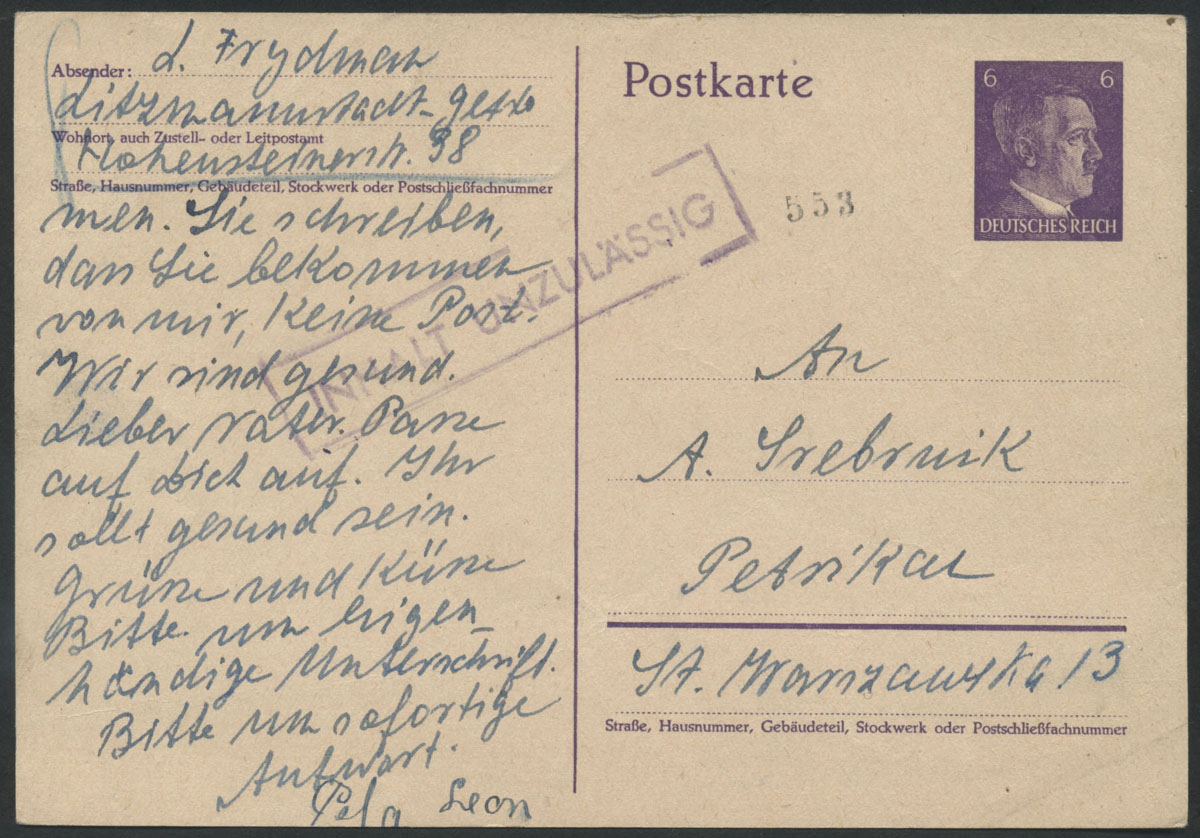 Absender: L. Frydman
Litzmannstadt-Getto
Wohnort, auch Zustell- oder Leitpostamt
Hohensteinerstr. 38
Straße, Hausnummer, Gebäudeteil, Stockwerk oder Postschließfachnummer
men. Sie schreiben,
dass Sie bekommen
von mir, keine Post.
Wir sind gesund.
Lieber Vater. Passe
auf Dich auf. Ihr
sollt gesund sein.
Grüsse und Küsse
Bitte um eigen-
händige Unterschrift.
Bitte um sofortige
Antwort.
Pela Leon
INHALT UNZULÄSSIG
Postkarte
553
6 6
DEUTSCHES REICH
An
A. Srebrnik
Petrikau
St. Warszawska 13
Straße, Hausnummer, Gebäudeteil, Stockwerk oder Postschließfachnummer